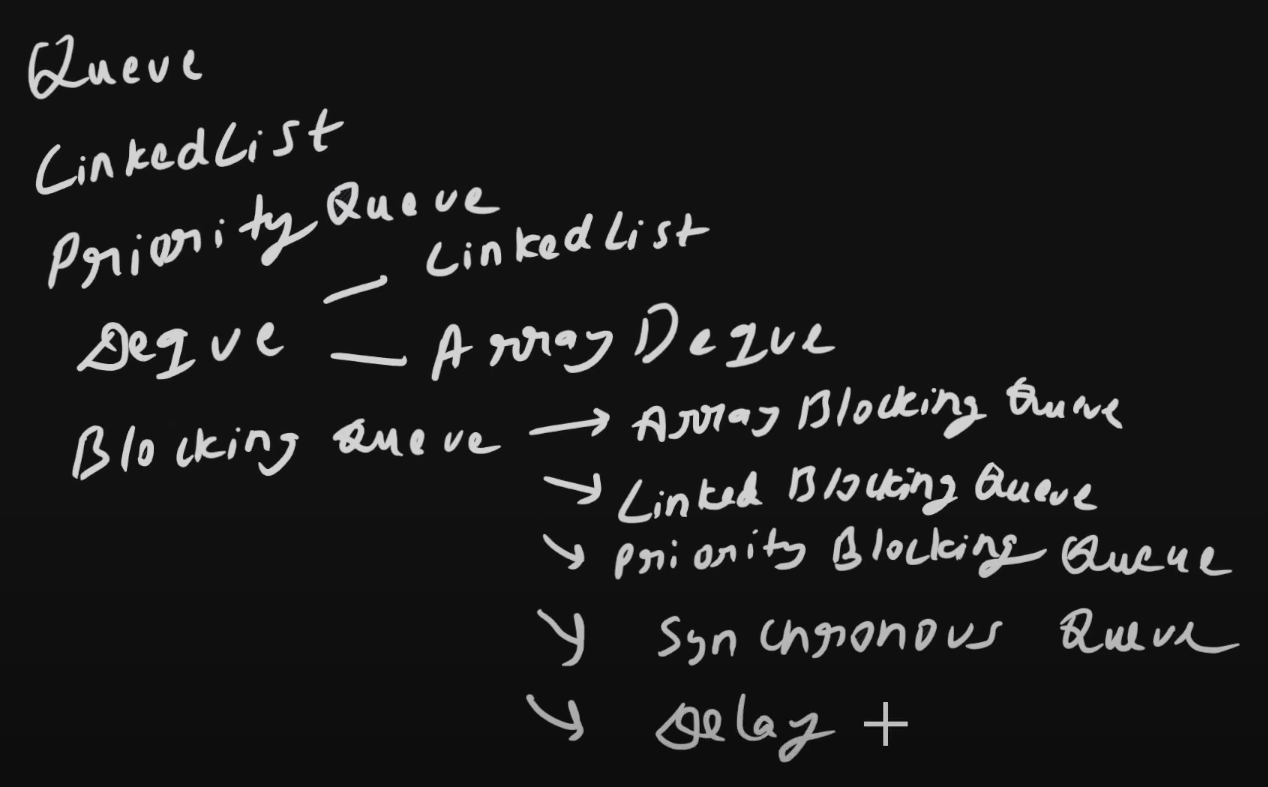 Queue
LinkedList
Priority Queue
Deque — LinkedList
— Array Deque
Blocking Queue → Array Blocking Queue
→ Linked Blocking Queue
→ Priority Blocking Queue
→ Synchronous Queue
→ Delay